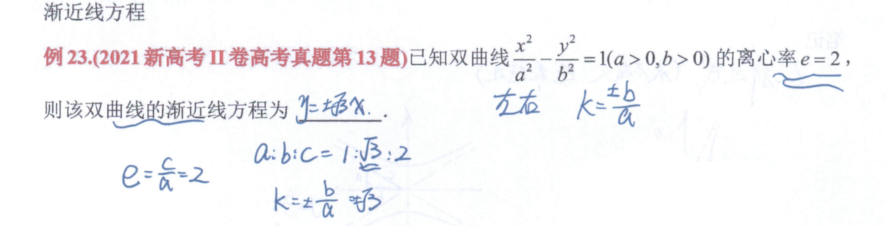 渐近线方程
例 23.(2021 新高考 II 卷高考真题第 13 题)已知双曲线 x²/a² - y²/b² = 1(a > 0, b > 0) 的离心率 e = 2，
则该双曲线的渐近线方程为 y=±√3x.
左右 k=±b/a
e=c/a=2
a:b:c=1:√3:2
k=±b/a=±√3